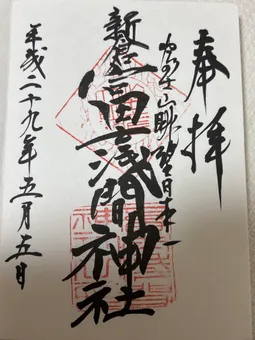 奉拝
富士山眺望日本一
新倉
富士浅間神社
平成二十九年五月五日